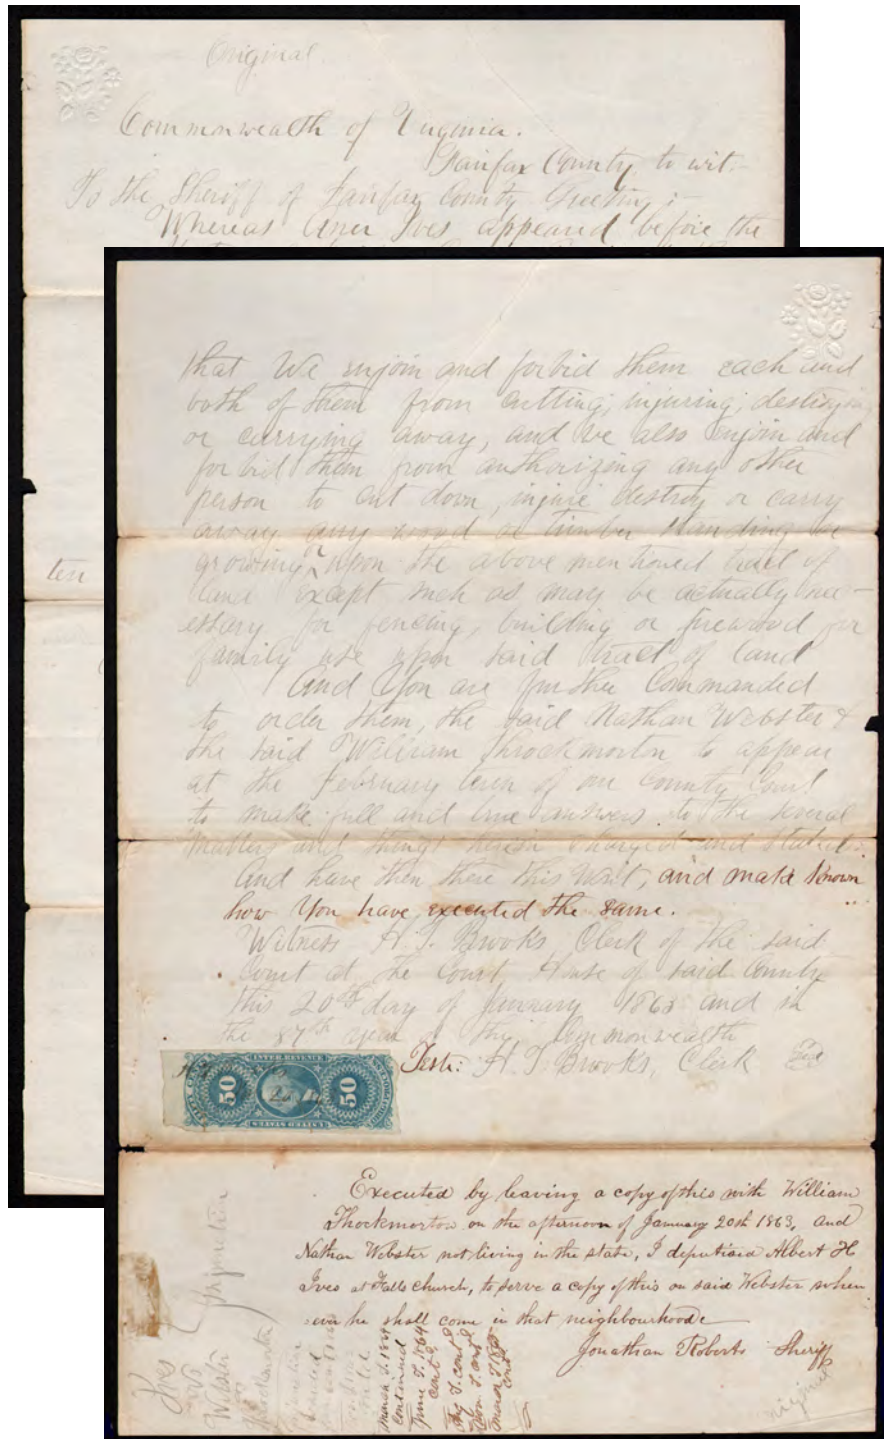 Original
Commonwealth of Virginia.
Fairfax County to wit.
To the Sheriff of Fairfax County Greeting:
Whereas Aner Ives appeared before the
ten
that We enjoin and forbid them each and
both of them from cutting, injuring, destroying
or carrying away, and we also enjoin and
forbid them from authorizing any other
person to cut down, injure destroy or carry
away any wood or timber standing or
growing upon the above mentioned tract of
land except such as may be actually nec-
essary for fencing, building or firewood for
family use upon said tract of land
And You are further Commanded
to order them, the said Nathan Webster &
the said William Throckmorton to appear
at the February term of our County Court
to make full and true answers to the several
matters and things herein charged and stated.
And have then there this Writ, and make known
how You have executed the same.
Witness H. T. Brooks Clerk of the said
Court at the Court House of said County
this 20th day of January 1863 and in
the 87th year of the Commonwealth
Teste: H. T. Brooks, Clerk
INTER. REVENUE
50
50
UNITED STATES
Executed by leaving a copy of this with William
Thockmorton on the afternoon of January 20th 1863, and
Nathan Webster not living in the state, I deputised Albert H
Ives at Falls Church, to serve a copy of this on said Webster when
ever he shall come in that neighbourhood
Jonathan Roberts Sheriff
Ives
vs
Webster
Injunction
March T. 1864
Continued
June T. 1864
Cont'd
Aug T. cont'd
Nov T. cont'd